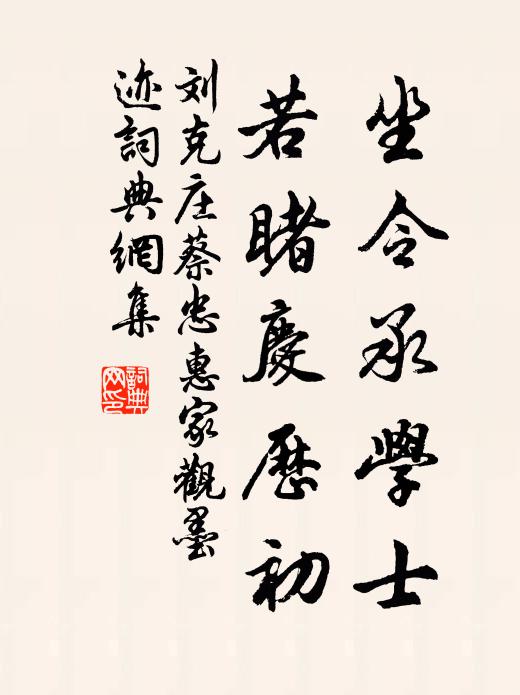 坐令承學士
若睹慶歷初
刘克庄蔡忠惠家觀墨
迹詞典網集
詞典網印